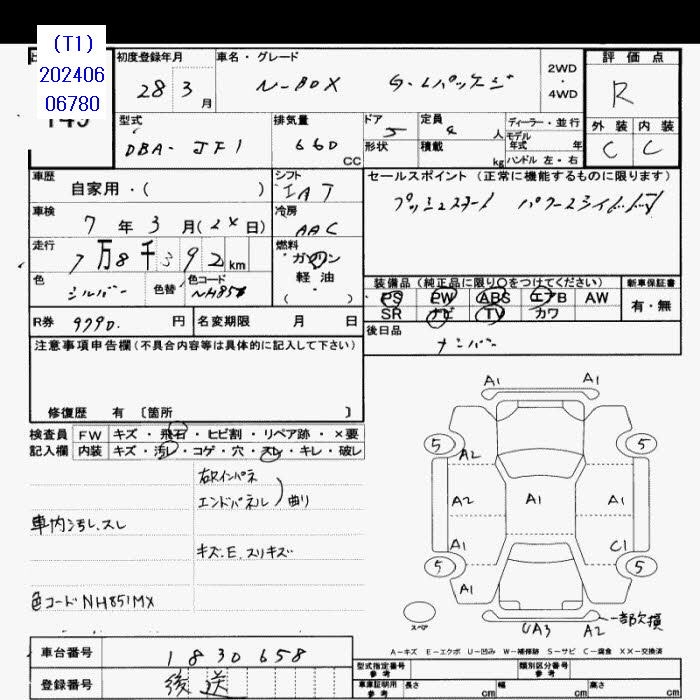 (T1)
202406
06780
初度登録年月
28 3 月
車名・グレード
N-BOX G・Lパッケージ
2WD・4WD
評価点
R
外装 内装
C C
型式
DBA- JF1
排気量
660 CC
ドア 5
形状
定員 4 人
積載 kg
ディーラー・並行
モデル年式 年
ハンドル 左・右
車歴
自家用・( )
シフト
IAT
車検
7 年 3 月 ( 日)
冷房
AAC
走行
7万8千392 km
燃料
ガソリン
軽油
( )
色
シルバー
色替
色コード
NH851
セールスポイント (正常に機能するものに限ります)
プッシュスタート パワースライドドア
装備品 (純正品に限り○をつけてください)
PS PW ABS エアB AW
SR ナビ TV カワ
新車保証書
有・無
R券 9990. 円
名変期限 月 日
後日品
ナンバー
注意事項申告欄 (不具合内容等は具体的に記入して下さい)
修復歴 有 〔箇所 〕
検査員記入欄
FW キズ・飛石・ヒビ割・リペア跡・×要
内装 キズ・汚レ・コゲ・穴・スレ・キレ・破レ
右Rインパネ
エンドパネル) 曲り
車内汚レ、スレ
キズ.E.スリキズ
色コードNH851MX
A1 A1
5 5
A2
A2 A1 A1
A1 C1
5 5
A1
スペア
UA3 A2 一部欠損
A-キズ E-エクボ U-凹み W-補修跡 S-サビ C-腐食 XX-交換済
車台番号 1830658
登録番号 後送
型式指定番号 参考
類別区分番号 参考
車庫証明用 参考
長さ cm 幅 cm 高さ cm